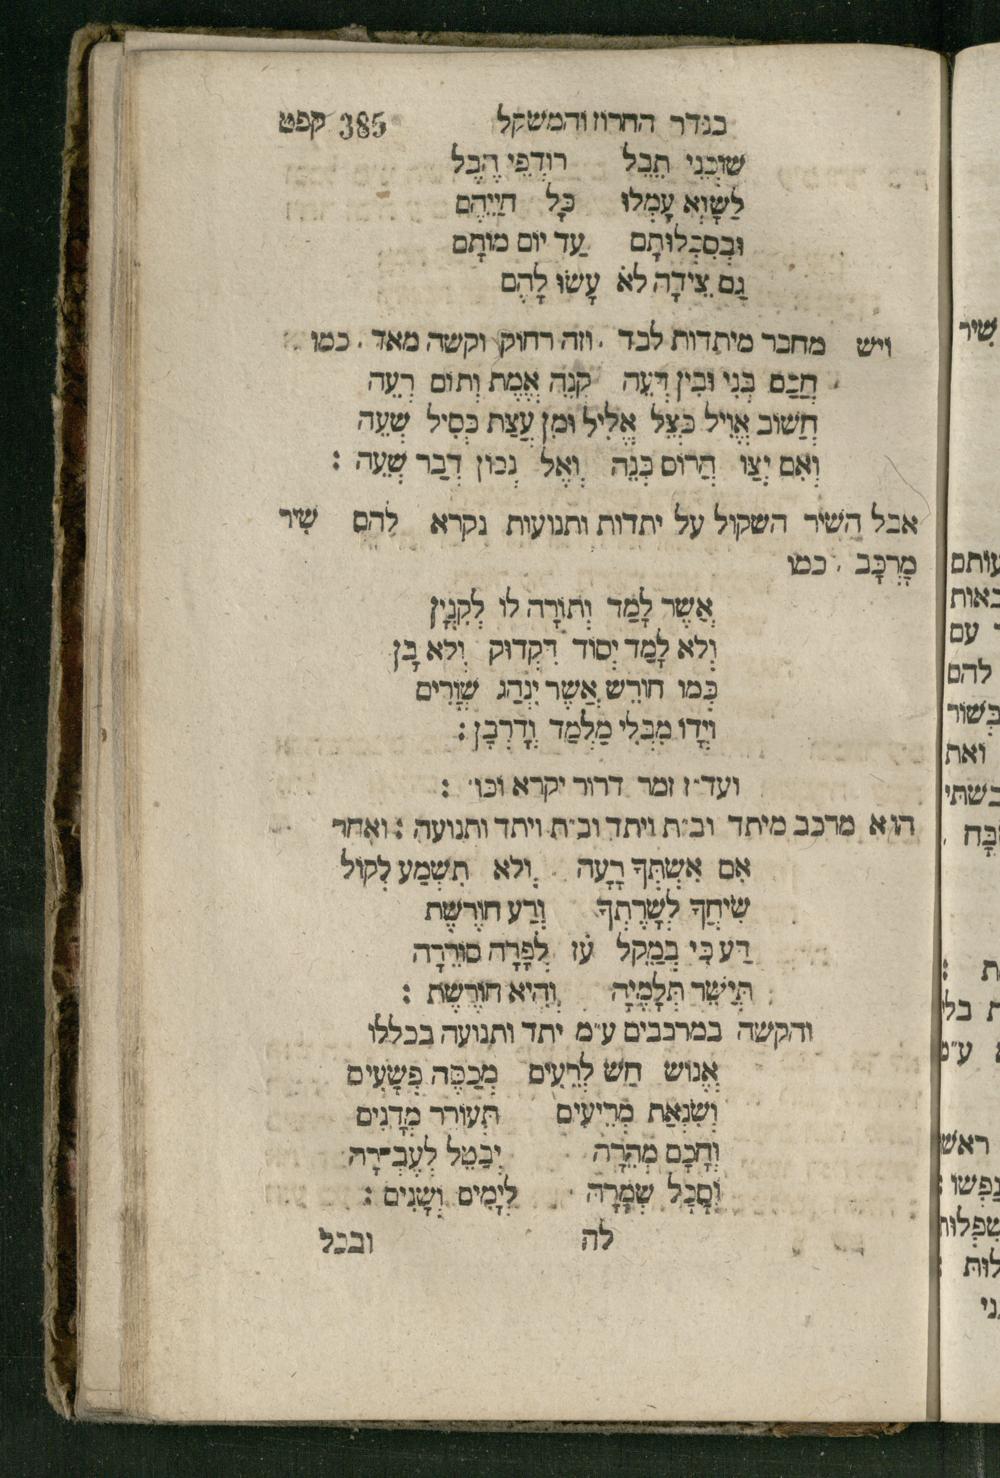 בגדר החרוז והמשקל 385 קפט
שׁוֹכְנֵי תֵבֵל רוֹדְפֵי הֶבֶל
לַשָּׁוְא עָמְלוּ כָּל חַיֵּיהֶם
וּבְסִכְלוּתָם עַד יוֹם מוֹתָם
גַם צֵידָה לֹא עָשׂוּ לָהֶם
ויש מחבר מיתדות לבד . וזה רחוק וקשה מאד . כמו
חֲכַם בְּנִי וּבִין דְּעֵה קְנֵה אֱמֶת וְתוֹם רְעֵה
חֲשׁוֹב אֱוִיל כְּצֵל אֱלִיל וּמִן עֲצַת כְּסִיל שְׁעֵה
וְאִם יְצַו הֲרוֹס בְּנֵה וְאֶל נְכוֹן דְּבַר שְׁעֵה :
אבל השיר השקול על יתדות ותנועות נקרא להם שִׁיר
מֻרְכָּב . כמו
אֲשֶׁר לָמַד וְתוֹרָה לוֹ לְקִנְיָן
וְלֹא לָמַד יְסוֹד דִּקְדּוּק וְלֹא בָּן
כְּמוֹ חוֹרֵשׁ אֲשֶׁר יִנְהַג שְׁוָרִים
וְיָדוֹ מִבְּלִי מַלְמַד וְדָרְבָן :
ועד״ז זמר דרור יקרא וכו׳ :
הוא מרכב מיתד וב״ת ויתד וב״ת ויתד ותנועה : ואחר
אִם אִשְׁתְּךָ רָעָה וְלֹא תִשְׁמַע לְקוֹל
שִׂיחֲךָ לְשָׁרֶתְךָ וְרַע חוֹרֶשֶׁת
דַּע כִּי בְמַקֵּל עֹז לְפָרָה סוֹרֵרָה
תְּיַשֵּׁר תְּלָמֶיהָ וְהִיא חוֹרֶשֶׁת :
והקשה במרכבים ע״מ יתד ותנועה בכללו
אֱנוֹשׁ חַשׁ לְרֵעִים מְכַסֶּה פְשָׁעִים
וְשִׂנְאַת מְרֵיעִים תְּעוֹרֵר מְדָנִים
וְחָכָם מְהֵרָה יְבַטֵּל לְעֶבְ־רָה
וְסָכָל שְׁמָרָהּ לְיָמִים וְשָׁנִים :
לה ובכל
שִׁיר
עותם
באות
עם
להם
בשור
ואת
בשתי
ת :
ת בלי
ע״מ
ראש
נַפְשׁוֹ :